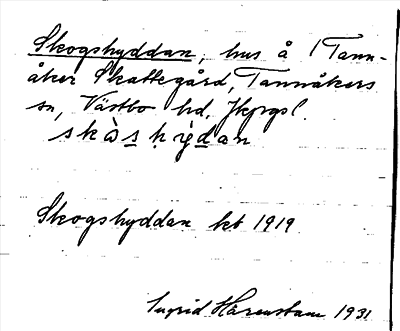 Skogshyddan, hus å 1 Tann-
åker Skattegård, Tannåkers
sn, Västbo hd, Jkpgsl.
skòs hỳdan
Skogshyddan kb 1919
Ingrid Hårenstam 1931